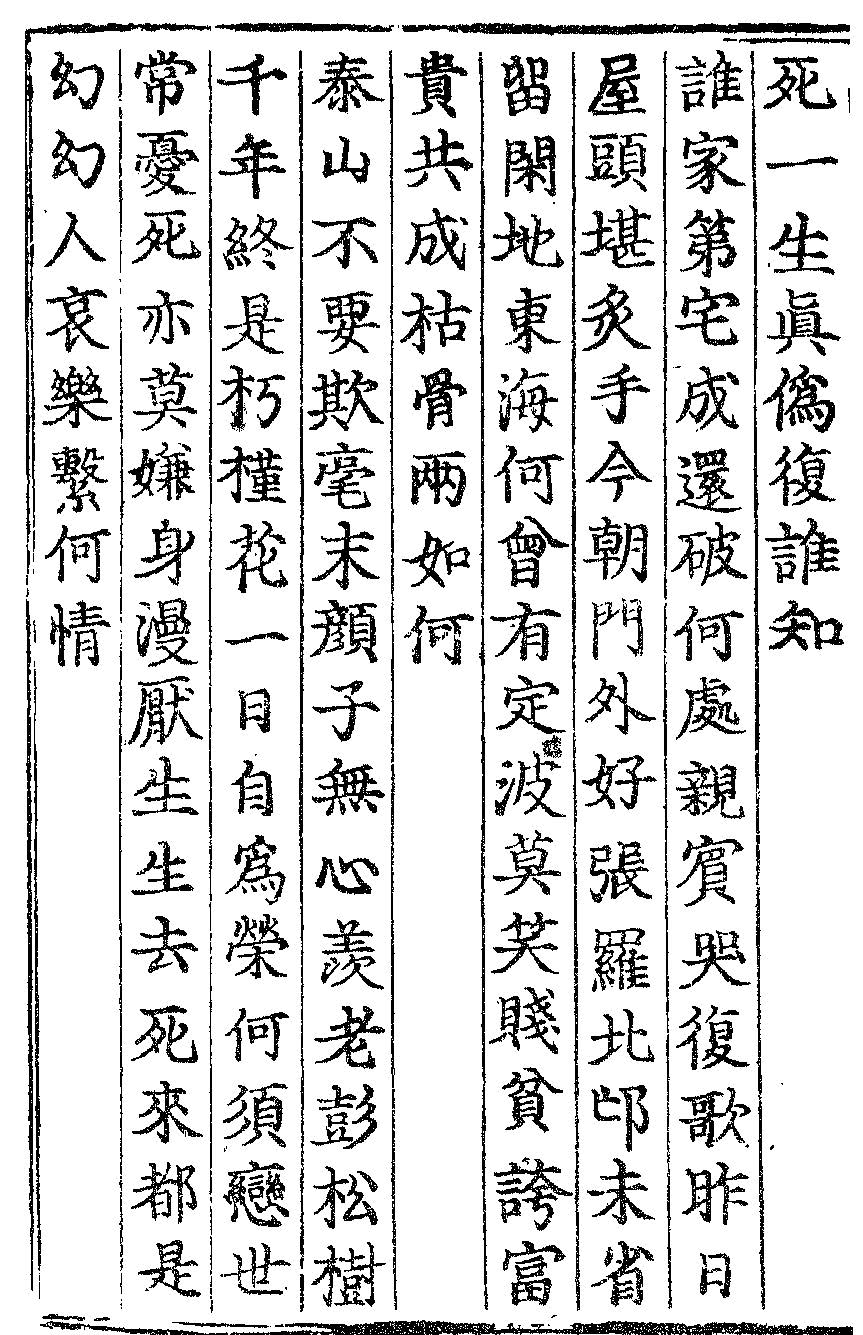 死一生眞僞復誰知
誰家第宅成還破何處親賓哭復歌昨日
屋頭堪炙手今朝門外好張羅北邙未省
留閑地東海何曾有定波莫笑賤貧誇富
貴共成枯骨兩如何
泰山不要欺毫末顔子無心羨老彭松樹
千年終是朽槿花一日自爲榮何須戀世
常憂死亦莫嫌身漫厭生生去死來都是
幻幻人哀樂繫何情